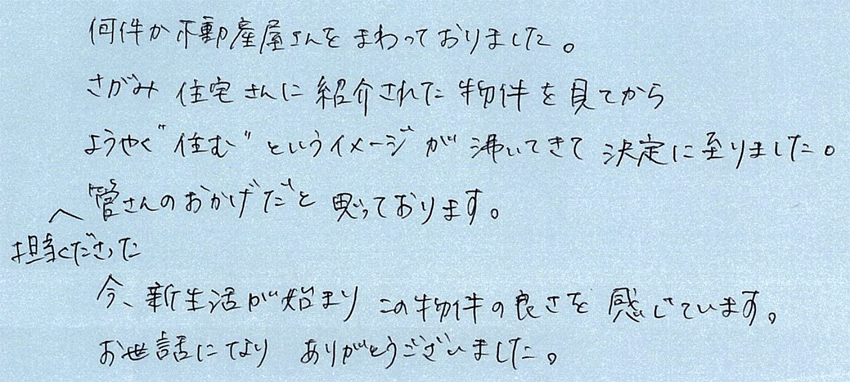 何件か不動産屋さんをまわっておりました。
さがみ住宅さんに紹介された物件を見てから
ようやく"住む"というイメージが沸いてきて決定に至りました。
管さんのおかげだと思っております。
担当くださった
今、新生活が始まりこの物件の良さを感じています。
お世話になりありがとうございました。